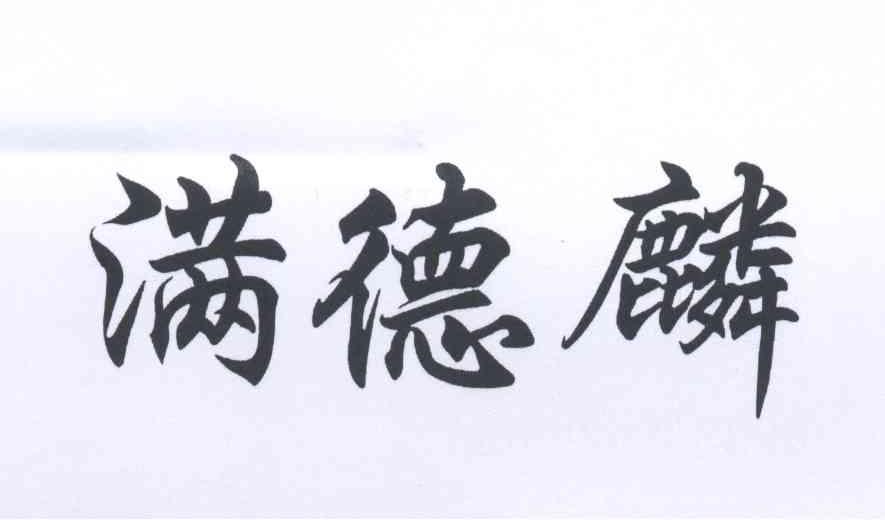 满德麟